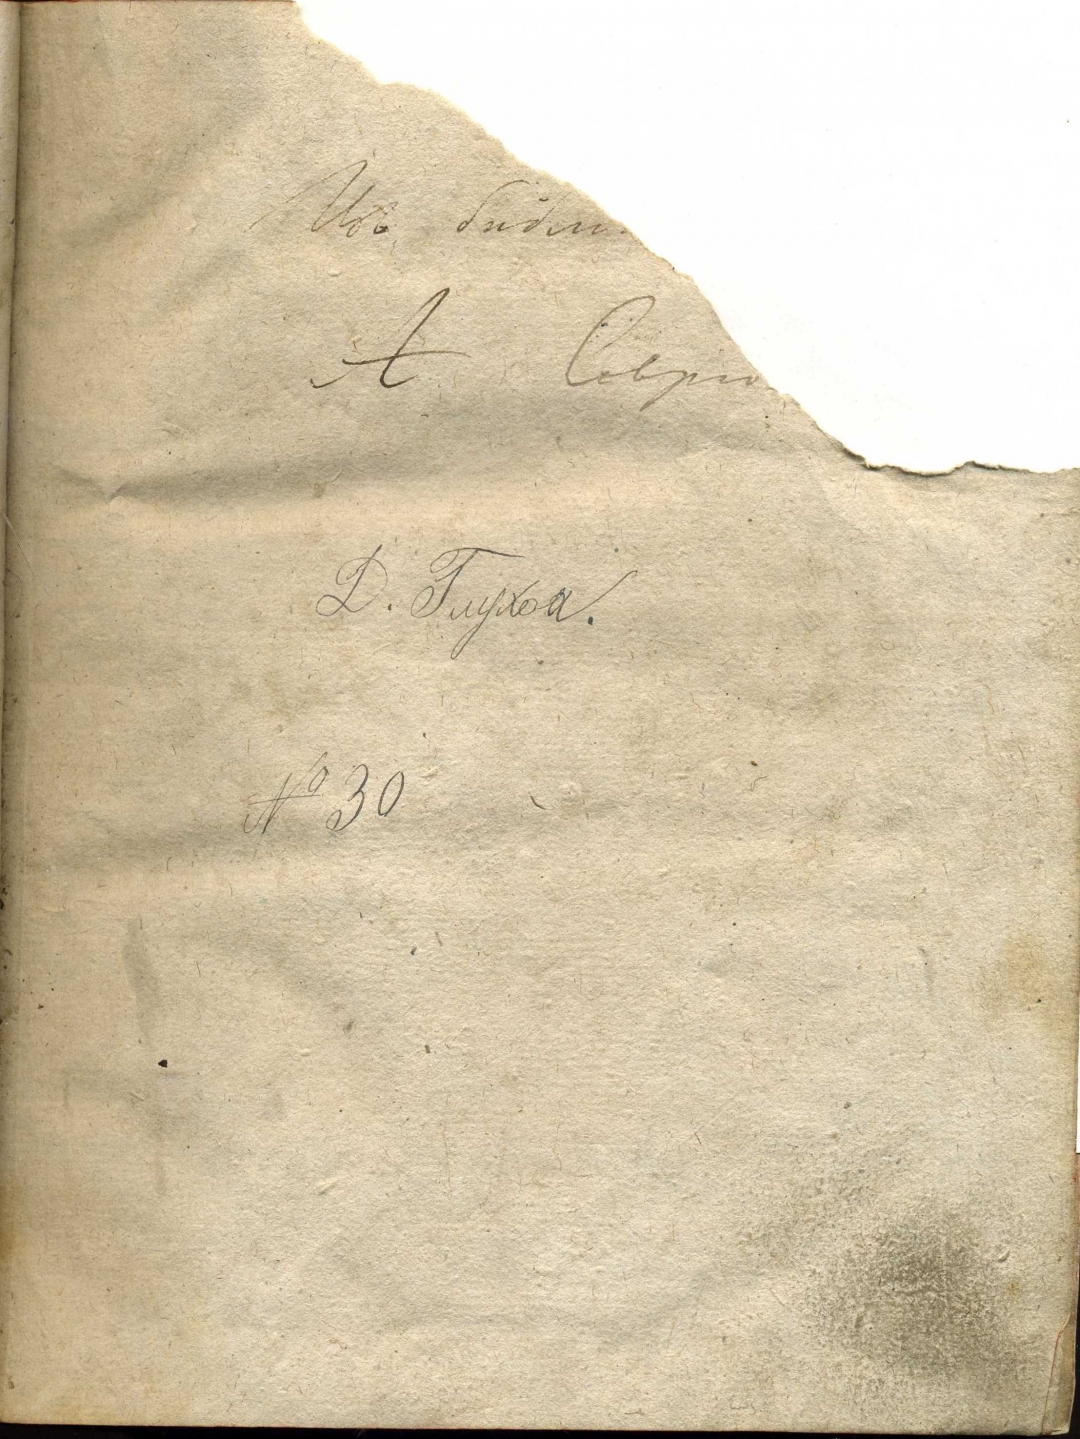 Изъ библи
А Севрю
Д. Глухов.
№ 30